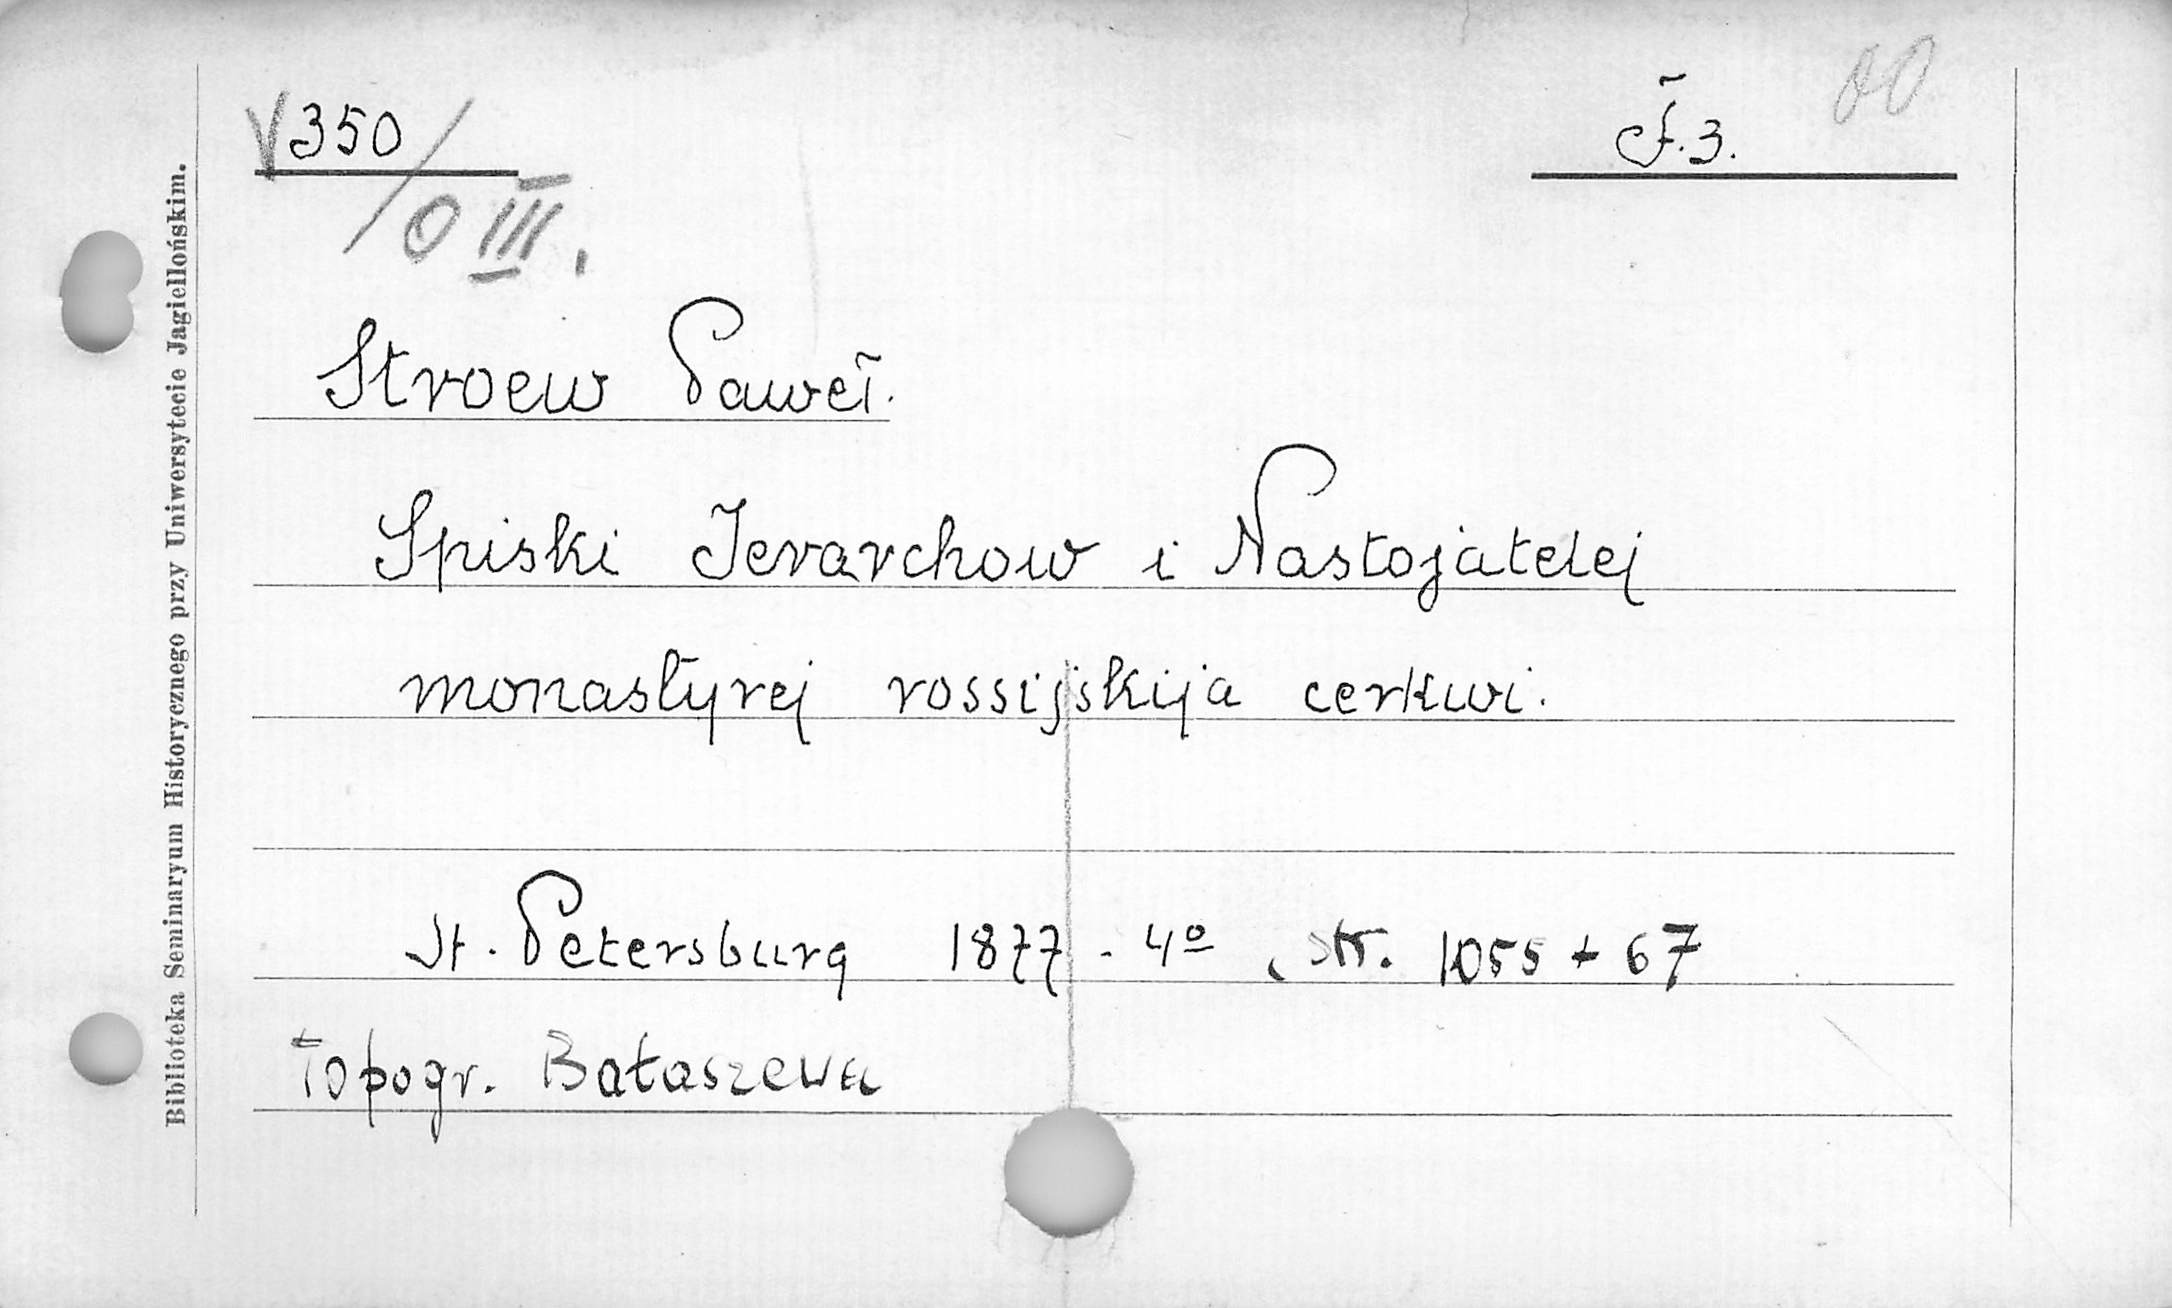 V 350 / O III.
F. 3. 00
Stroew Paweł.
Spiski Ierarchow i Nastojatelej
monastyrej rossijskija cerkwi.
St. Petersburg 1877 - 4º, str. 1055 + 67
Topogr. Bałaszewa
Biblioteka Seminaryum Historycznego przy Uniwersytecie Jagiellońskim.